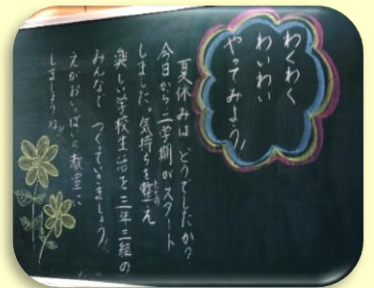 わくわく
わいわい
やってみよう!
夏休みは どうでしたか?
今日から二学期がスタート
しました。気持ちを整え
ととの
楽しい学校生活を三年三組の
みんなで つくっていきましょう。
えがおいっぱいの教室に
しましょうね。